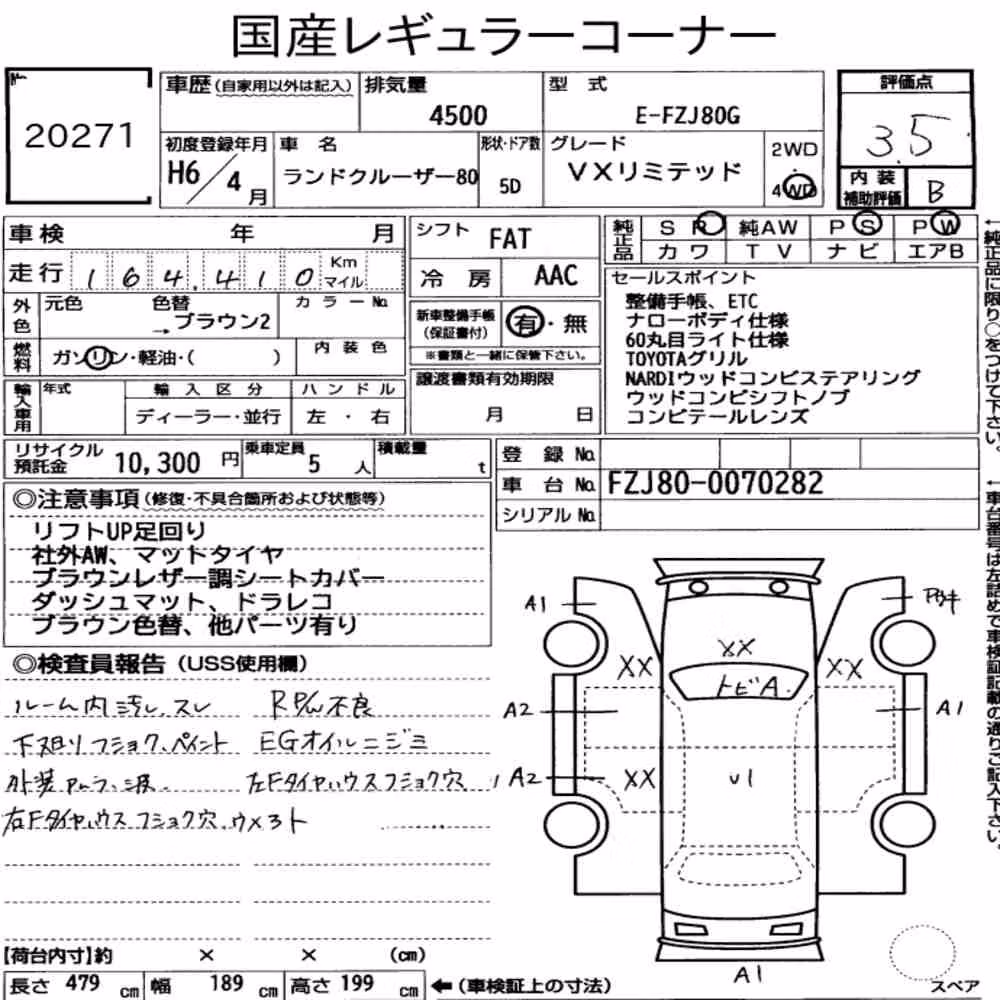 国産レギュラーコーナー
20271
車歴(自家用以外は記入) 排気量 型 式 評価点
4500 E-FZJ80G 3.5
初度登録年月 車 名 形状・ドア数 グレード 2WD
H6/4月 ランドクルーザー80 5D VXリミテッド 4WD
内装補助評価 B
車検 年 月
シフト FAT
純正品 SR 純AW PS PW
カワ TV ナビ エアB
走行 164,410 Km マイル
冷房 AAC
セールスポイント
整備手帳、ETC
ナローボディ仕様
60丸目ライト仕様
TOYOTAグリル
NARDIウッドコンビステアリング
ウッドコンビシフトノブ
コンビテールレンズ
外色 元色 色替 カラーNo.
→ブラウン2
新車整備手帳(保証書付) 有・無
※書類と一緒に保管下さい。
燃料 ガソリン・軽油・( ) 内装色
譲渡書類有効期限
月 日
輸入車用 年式 輸入区分 ハンドル
ディーラー・並行 左・右
リサイクル預託金 10,300円 乗車定員 5人 積載量 t
登録No.
車台No. FZJ80-0070282
シリアルNo.
←純正品に限り○をつけて下さい。
←車台番号は左詰めで車検証記載の通りご記入下さい。
◎注意事項(修復・不具合箇所および状態等)
リフトUP足回り
社外AW、マットタイヤ
ブラウンレザー調シートカバー
ダッシュマット、ドラレコ
ブラウン色替、他パーツ有り
◎検査員報告(USS使用欄)
ルーム内汚レ、スレ R P/W不良
下廻リフショク、ペイント EGオイルニジミ
外装ムラ、波 左Fタイヤハウスフショク穴
右Fタイヤハウスフショク穴、ウメあト
A1
XX
XX
XX
トビA
A2
A1
A2
XX
U1
A1
スペア
【荷台内寸】約 × × (cm)
長さ 479 cm 幅 189 cm 高さ 199 cm ←(車検証上の寸法)